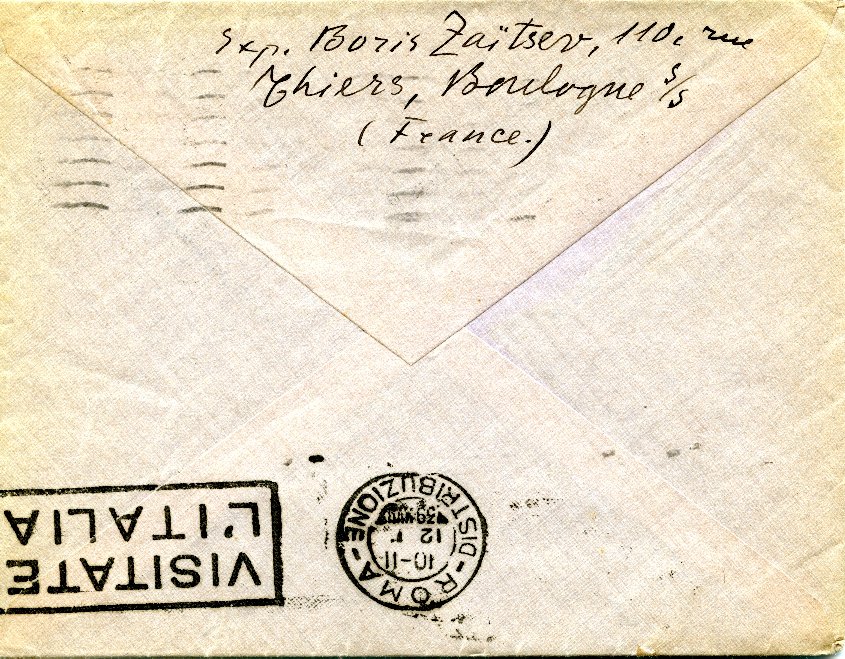 Exp. Boris Zaïtsev, 110, rue
Thiers, Boulogne s/s
(France.)
VISITATE
L'ITALIA
ROMA - DISTRIBUZIONE -
10-11
12